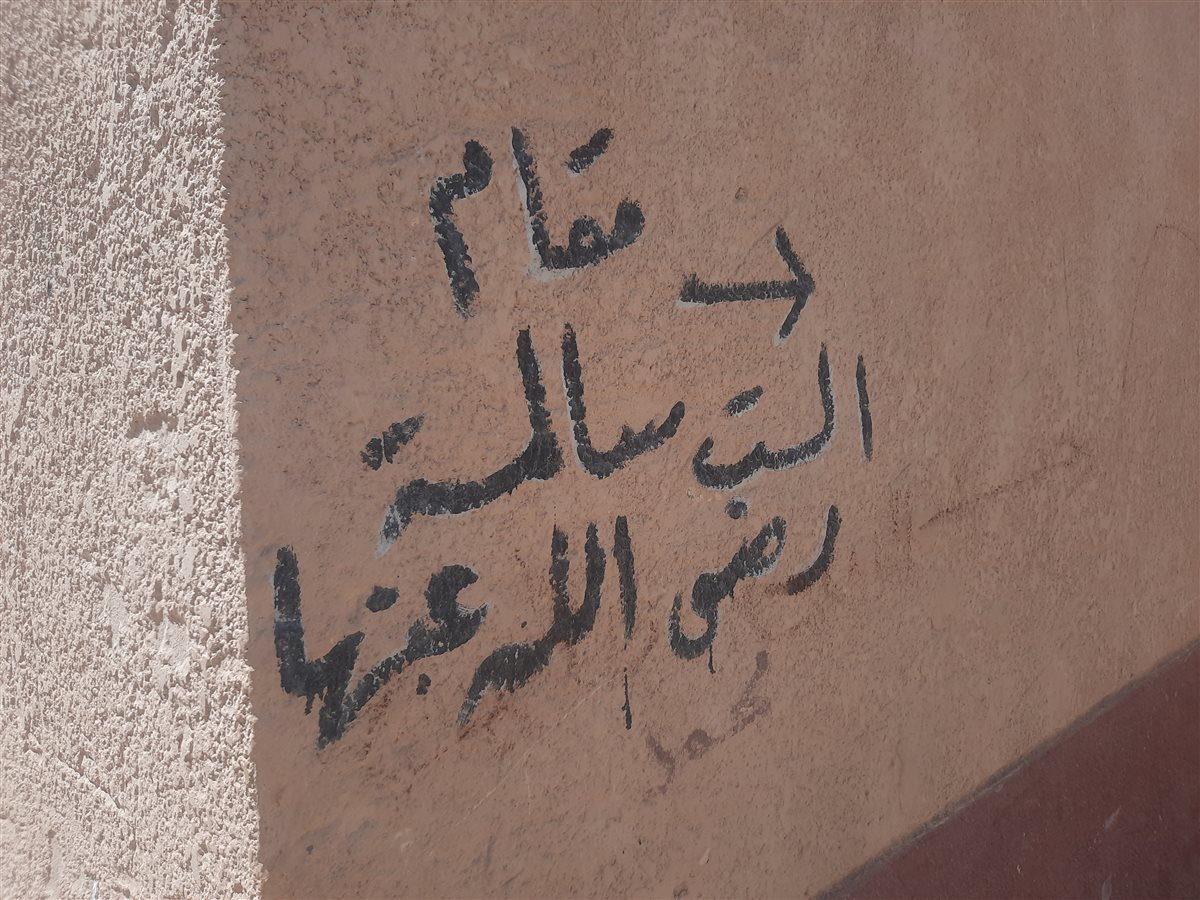 مقام
الست سالمة
رضى الله عنها